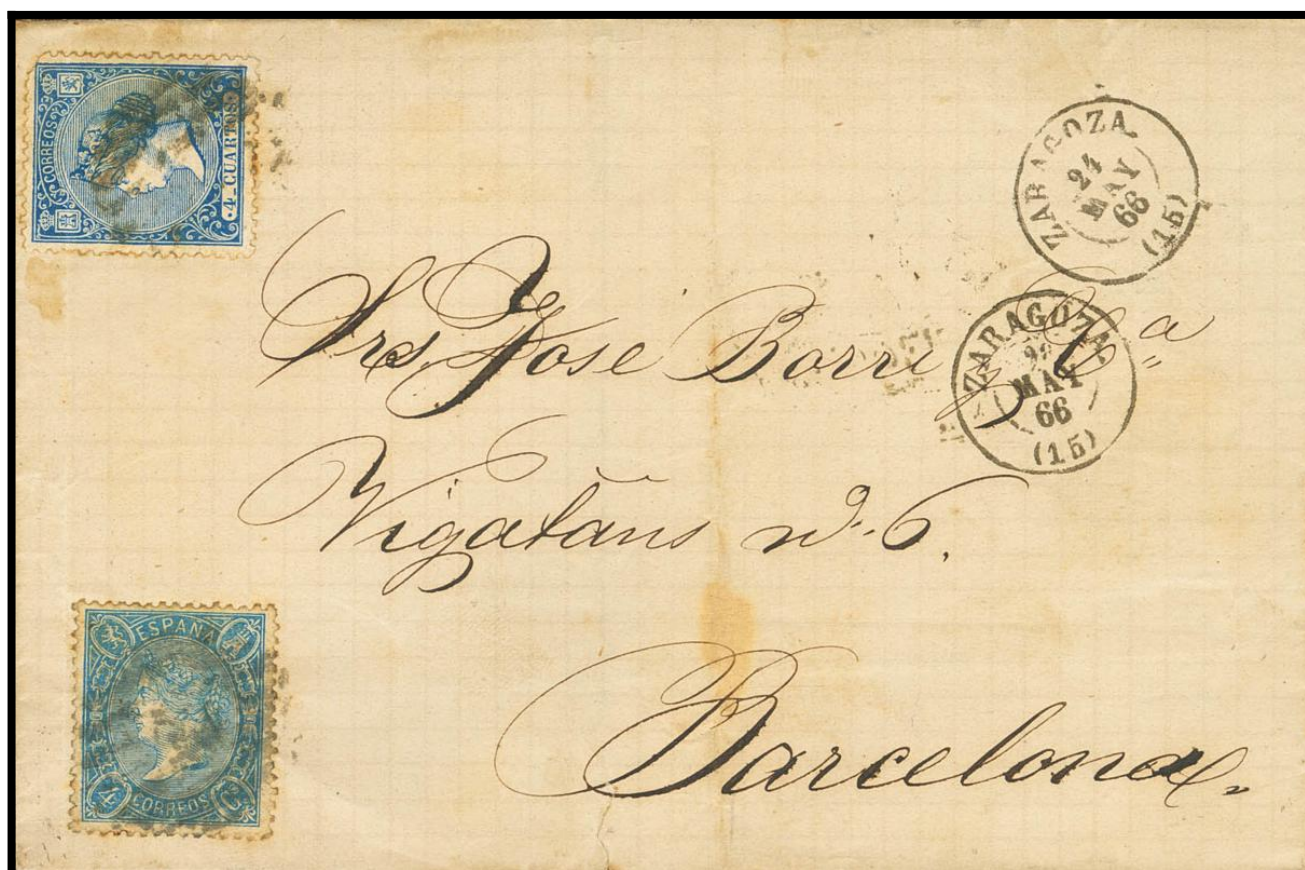 CORREOS
4 CUARTOS
ZARAGOZA
24
MAY
66
(15)
ZARAGOZA
MAY
66
(15)
Srs Jose Borri y Cª
Vigatans nº 6.
Barcelona
ESPAÑA
4 Cs
CORREOS